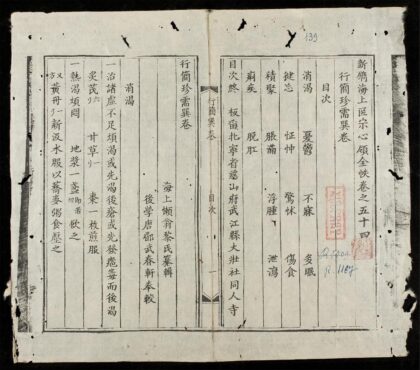 139
新鐫海上医宗心領全帙卷之五十四
行簡珍需巽卷
目次
消渴 憂鬱 不寐 多眠
健忘 怔忡 驚悸 傷食
積聚 脹𤺊 浮腫 泄瀉
痢疾 脫肛
目次終 板留北寧省慈山府武江縣大壯社同人寺
行簡巽卷 目次 一
行簡珍需巽卷
海上懶翁黎氏纂輯
後學唐郿武春軒奉較
消渴
一治諸虛不足煩渴或先渴後瘡或先發瘡毒而後渴
炙茋 甘草 棗一枚煎服
一熱渴煩悶 地漿一盞 飲之
又方 黃丹 新汲水服以蕎麥粥食壓之
Paris
R.1187